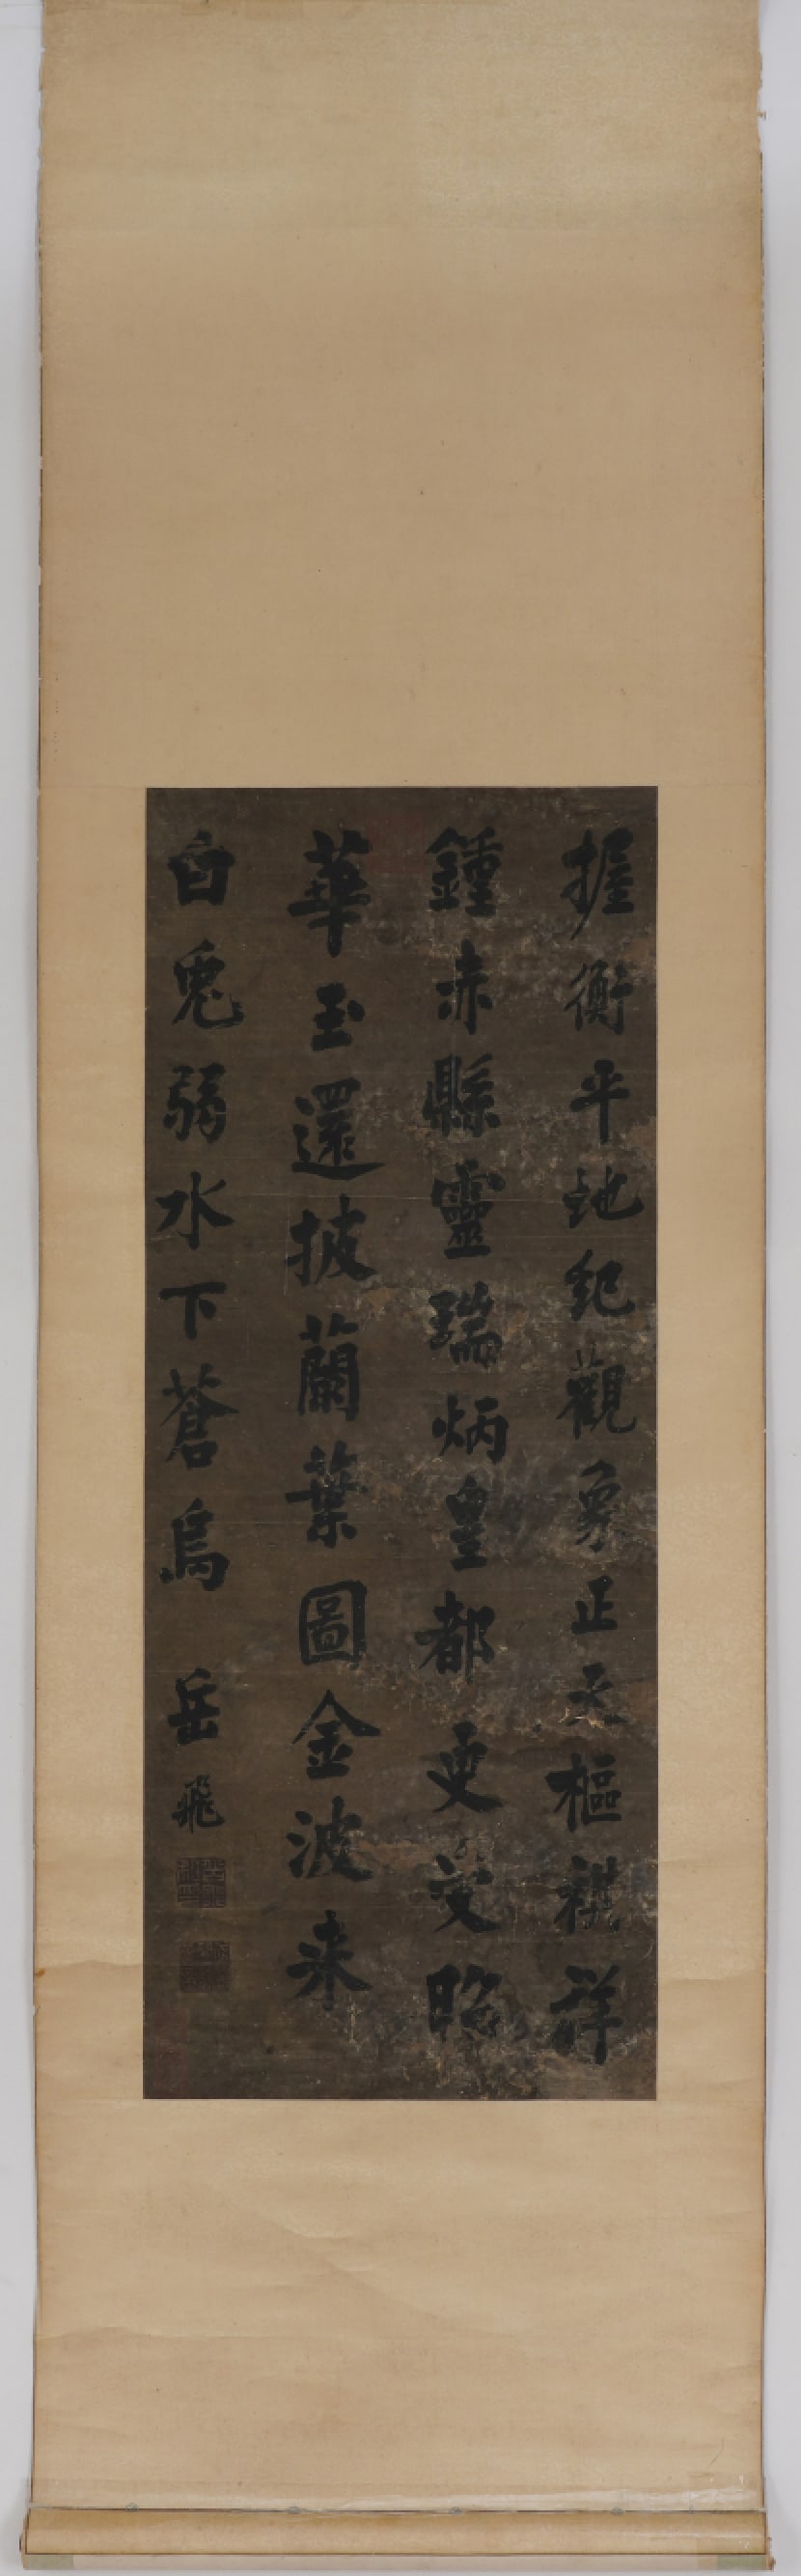 握衡平地紀觀象正天樞祺祥
鍾赤縣靈瑞炳皇都更受昭
華玉還披蘭葉圖金波来
白兎弱水下蒼烏
岳飛